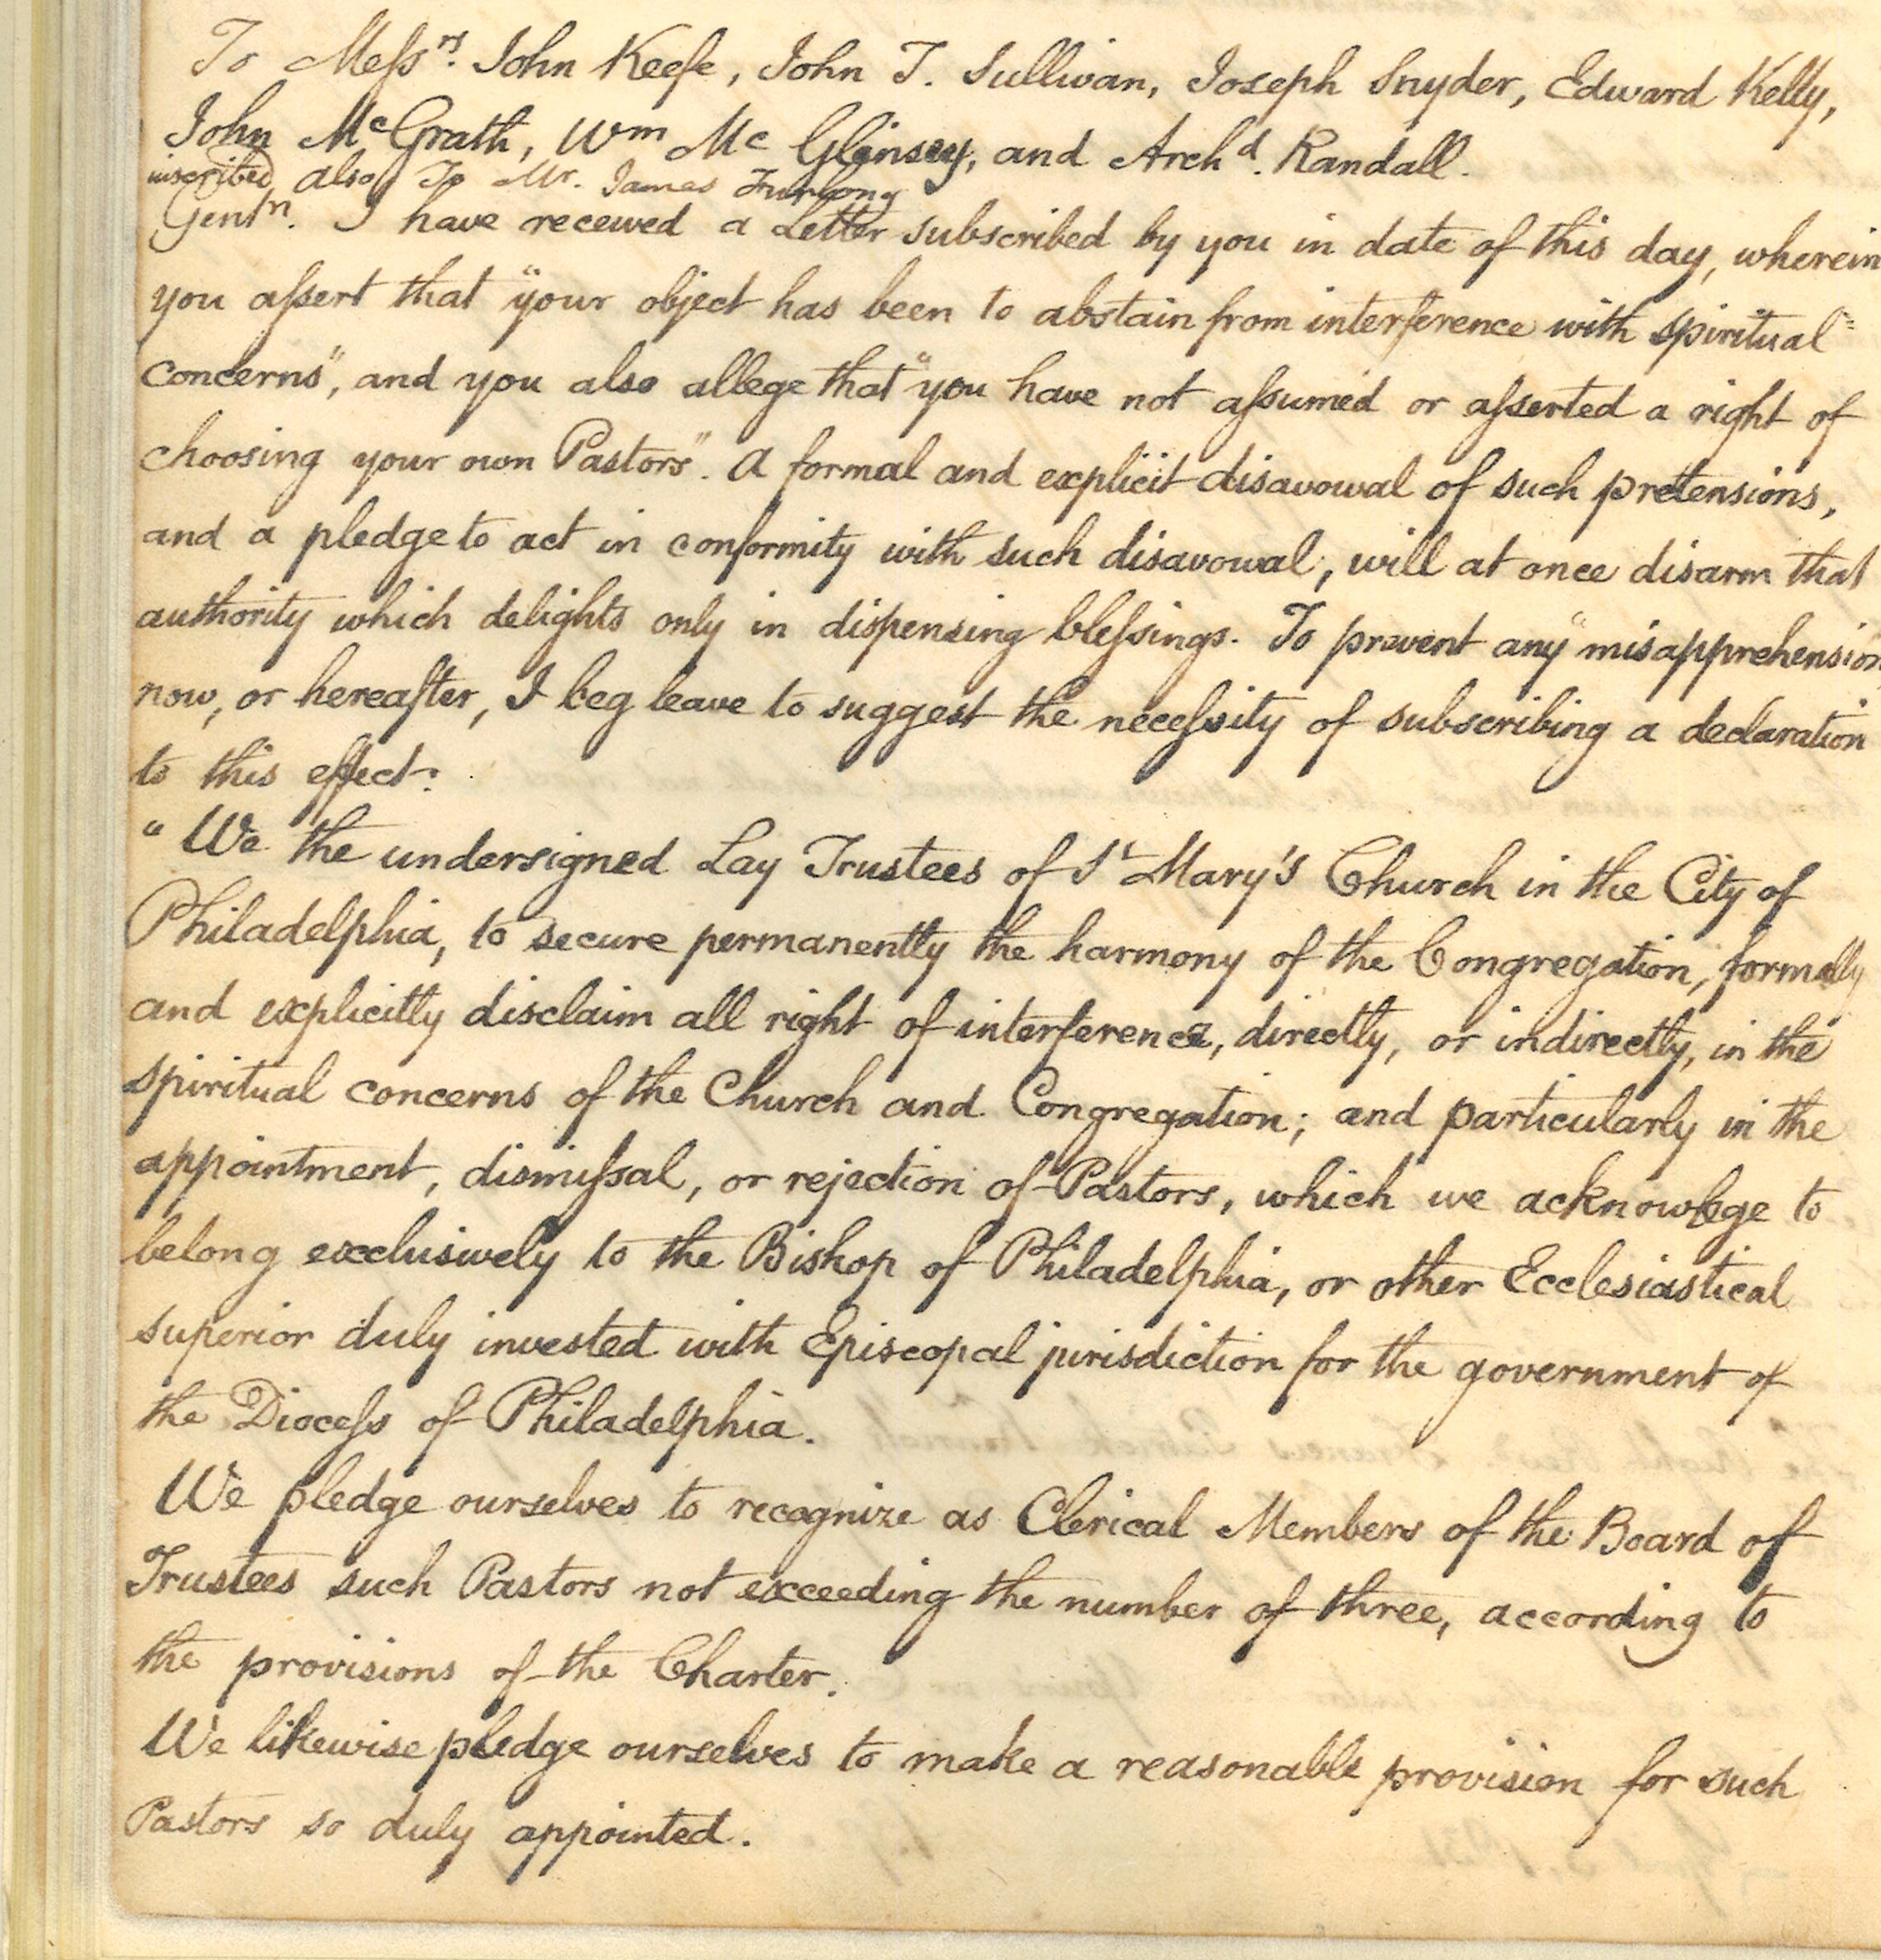 To Messrs. John Keefe, John T. Sullivan, Joseph Snyder, Edward Kelly,
John McGrath, Wm Mc Glinsey, and Archd. Randall.
inscribed also To Mr. James Furlong
Gentn. I have received a Letter subscribed by you in date of this day, wherein
you assert that "your object has been to abstain from interference with spiritual
concerns", and you also allege that "you have not assumed or asserted a right of
choosing your own Pastors". A formal and explicit disavowal of such pretensions,
and a pledge to act in conformity with such disavowal, will at once disarm that
authority which delights only in dispensing blessings. To prevent any "misapprehension
now, or hereafter, I beg leave to suggest the necessity of subscribing a declaration
to this effect:
"We the undersigned Lay Trustees of St Mary's Church in the City of
Philadelphia, to secure permanently the harmony of the Congregation, formally
and explicitly disclaim all right of interference, directly, or indirectly, in the
spiritual concerns of the Church and Congregation; and particularly in the
appointment, dismissal, or rejection of Pastors, which we acknowlege to
belong exclusively to the Bishop of Philadelphia, or other Ecclesiastical
superior duly invested with Episcopal jurisdiction for the government of
the Diocess of Philadelphia.
We pledge ourselves to recognize as Clerical Members of the Board of
Trustees such Pastors not exceeding the number of three, according to
the provisions of the Charter.
We likewise pledge ourselves to make a reasonable provision for such
Pastors so duly appointed.